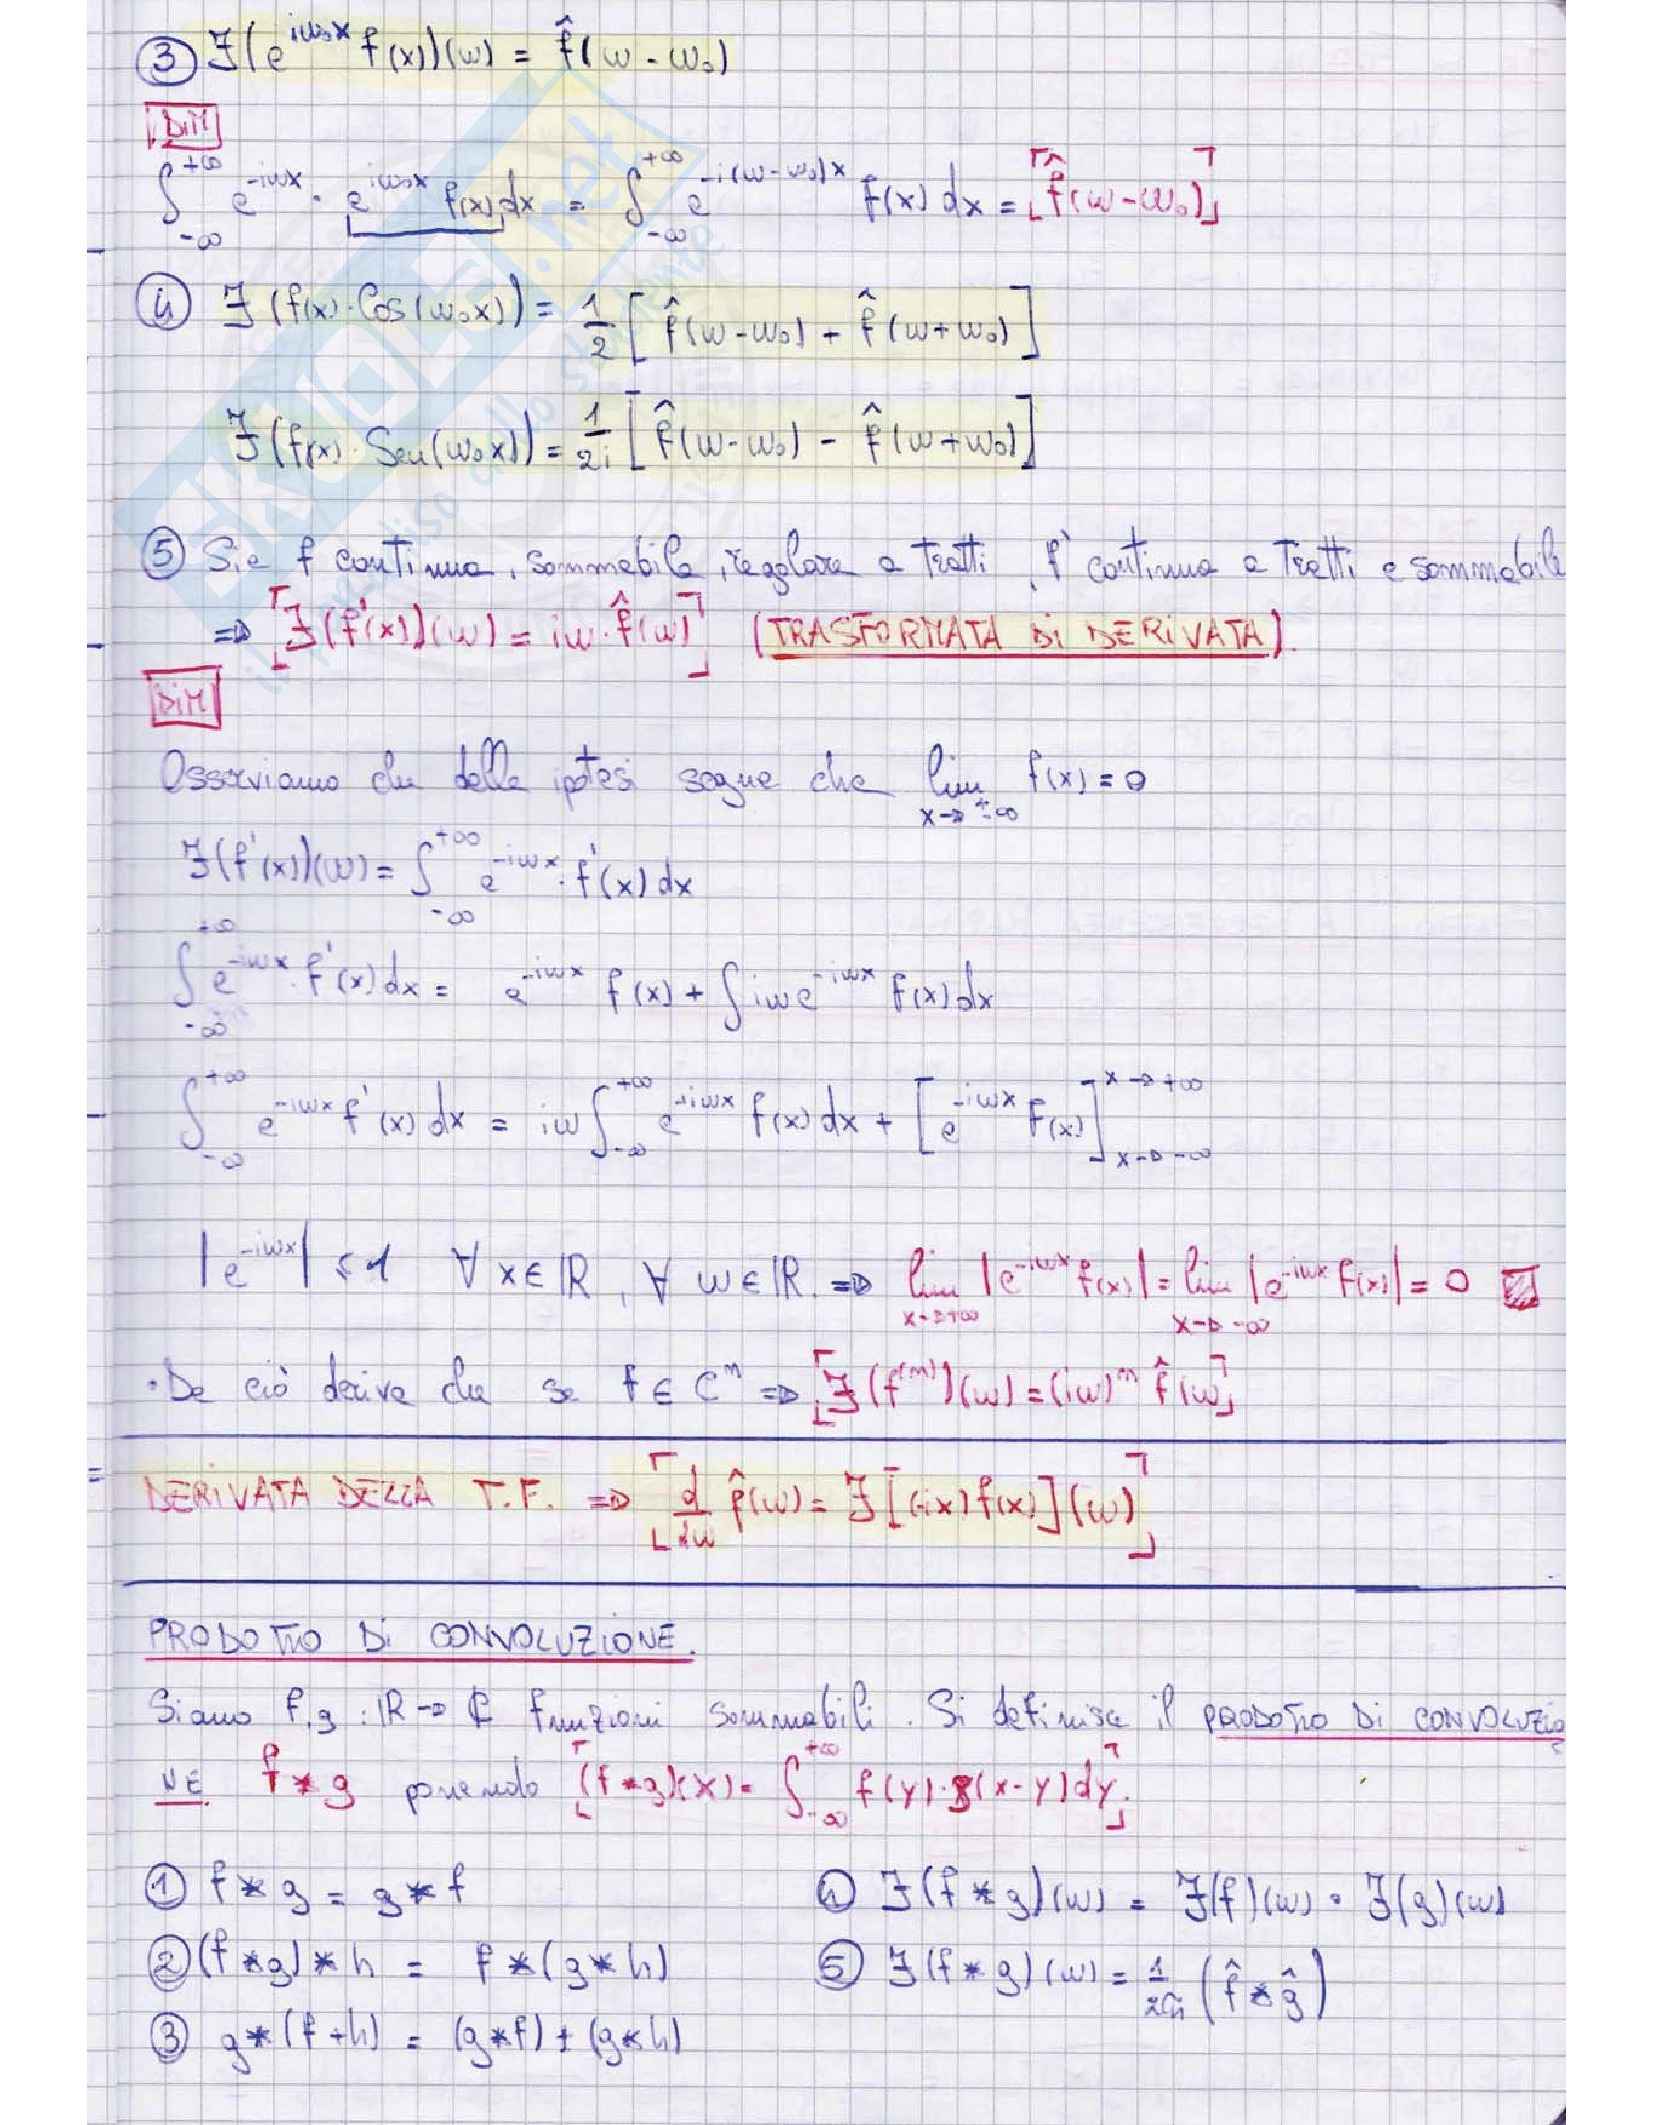 ③ ℱ(e^{iω₀x} f(x))(ω) = f̂(ω - ω₀)
DIM
∫_{-∞}^{+∞} e^{-iωx} · e^{iω₀x} f(x) dx = ∫_{-∞}^{+∞} e^{-i(ω-ω₀)x} f(x) dx = f̂(ω-ω₀)
④ ℱ(f(x)·Cos(ω₀x)) = 1/2 [f̂(ω-ω₀) + f̂(ω+ω₀)]
ℱ(f(x)·Sen(ω₀x)) = 1/2i [f̂(ω-ω₀) - f̂(ω+ω₀)]
⑤ Sia f continua, sommabile, regolare a tratti, f' continua a tratti e sommabile
⇒ ℱ(f'(x))(ω) = iω·f̂(ω) (TRASFORMATA DI DERIVATA).
DIM
Osserviamo che dalle ipotesi segue che lim_{x→±∞} f(x) = 0
ℱ(f'(x))(ω) = ∫_{-∞}^{+∞} e^{-iωx}·f'(x) dx
∫_{-∞}^{+∞} e^{-iωx}·f'(x) dx = e^{-iωx} f(x) + ∫ iω e^{-iωx} f(x) dx
∫_{-∞}^{+∞} e^{-iωx} f'(x) dx = iω ∫_{-∞}^{+∞} e^{-iωx} f(x) dx + [e^{-iωx} f(x)]_{x→-∞}^{x→+∞}
|e^{-iωx}| ≤ 1 ∀ x∈ℝ, ∀ ω∈ℝ. ⇒ lim_{x→+∞} |e^{-iωx} f(x)| = lim_{x→-∞} |e^{-iωx} f(x)| = 0
· Da ciò deriva che se f ∈ Cⁿ ⇒ ℱ(f^{(n)})(ω) = (iω)ⁿ f̂(ω)
DERIVATA DELLA T.F. ⇒ d/dω f̂(ω) = ℱ[(-ix) f(x)](ω)
PRODOTTO DI CONVOLUZIONE.
Siano f,g : ℝ→ℂ funzioni sommabili. Si definisce il PRODOTTO DI CONVOLUZIO
NE f*g ponendo (f*g)(x) = ∫_{-∞}^{+∞} f(y)·g(x-y) dy.
① f*g = g*f
② (f*g)*h = f*(g*h)
③ g*(f+h) = (g*f) + (g*h)
④ ℱ(f*g)(ω) = ℱ(f)(ω) · ℱ(g)(ω)
⑤ ℱ(f*g)(ω) = 1/2π (f̂*ĝ)
SKUOLA.net